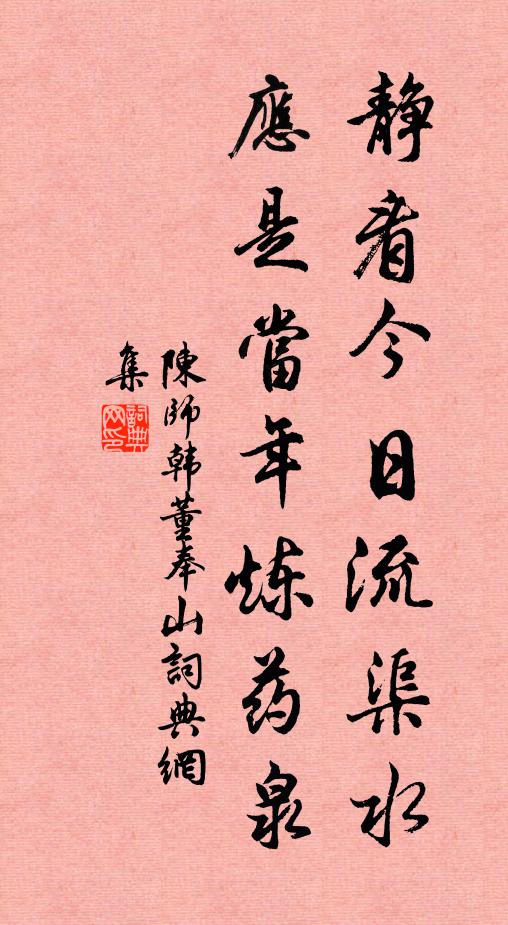 静看今日流渠水
應是當年炼药泉
陳師韩董奉山詞典網
集
詞典
网印